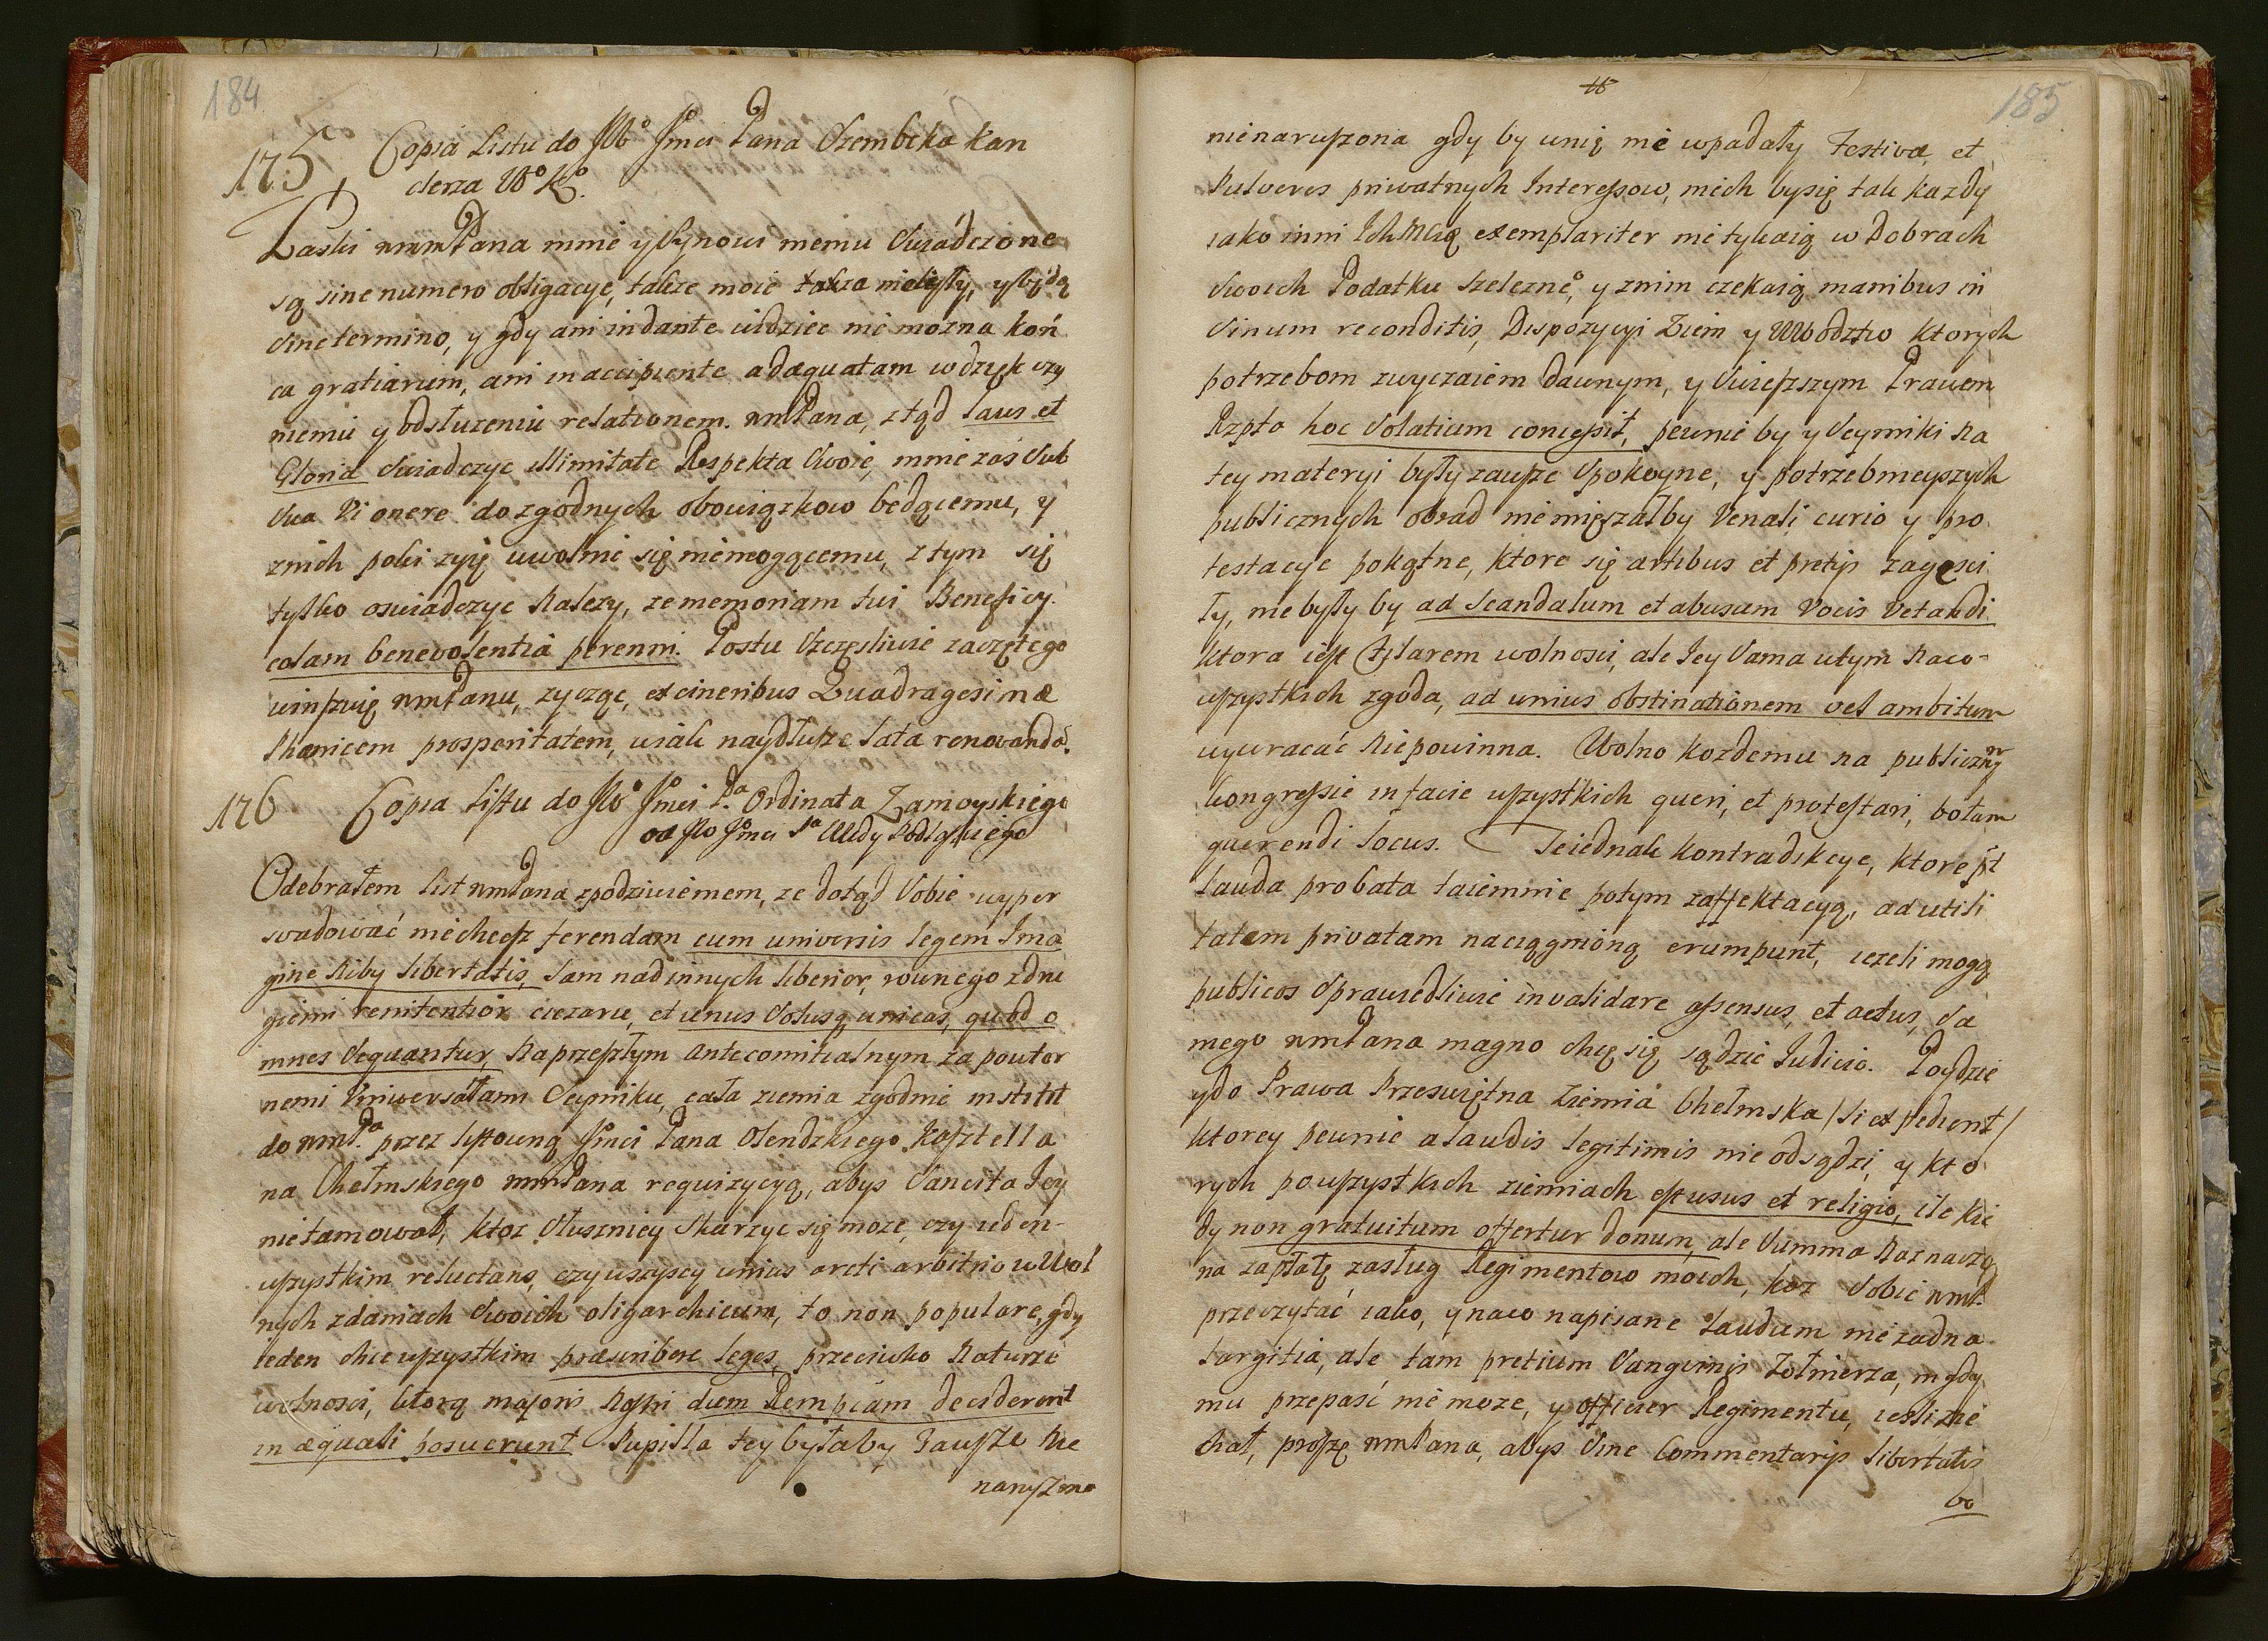 184
175 Copia Listu do JWo Jmci Pana Szembeka Kan
clerza Wo Ko.
Łaski wmPana mnie y Synowi memu Swiadczone
są sine numero obligacye, także moie także nieliszy, y będą
Sine termino, y gdy ani in dante widziec nie mozna koń
ca gratiarum, ani in accipiente adæquatam wdzięk czy
nieniu y odsłużeniu relationem. wmPana, ztąd laus et
Gloria Swiadczyc illimitate Respekta Swoie, mnie zaś Sub
Sua Vi onere dozgodnych obowiązkow będącemu, y
znich poki zyię uwolnic się niemogącemu, z tym się
tylko oswiadczyc Nalezy, ze memoriam tui Beneficy.
colam benevolentia perenni. Postu Szczęsliwie zaczętego
winszuię wmPanu, zycząc, ex cineribus Quadragesimæ
Phænicem prosperitatem, wiak naydłuzsze lata renovando.
176 Copia Listu do JWo Jmci Pa Ordinata Zamoyskiego
od JWo Jmci Pa Wdy Podlaskiego
Odebrałem List wmPana zpodziwieniem, ze dotąd Sobie wyper
swadować niechcesz ferendam cum universis legem Ima
gine Niby libertatis, Sam nad innych liberior, rownego zdru
giemi renitentior ciezaru, et unus Solusq unicas, quod o
mnes Sequantur, Na przeszłym antecomitialnym za powtor
nemi Uniwersałami Seymiku, cała ziemia zgodnie institit
do wmPa przez listowną Jmci Pana Olendzkiego Kasztella
na Chełmskiego wmPana requizycyą, abys Sancita Jey
nietamował, ktoz Słuszniey Skarzyc się moze, czy ieden
wszystkim reluctans, czy wszyscy unius arcti arbitrio w Wol
nych zdaniach Swoich oligarchicum, to non populare, gdy
ieden chce wszystkim præscribere leges, przeciwko Naturze
wolnosci, ktorą majores Nostri dum Rempcam deciderent
in æquali posuerunt. Pupilla tey byłaby Zawsze Nie
naruszona
185
nienaruszona gdy by unię nie wpadały Festiva, et
Pulveres priwatnych Interessow, niech bysię tak kazdy
iako inni IchMcią exemplariter nietykaią w Dobrach
Swoich Podatku Szelezneo, y znim czekaią manibus in
Sinum reconditis, Dispozycyi Ziem y Wodztw ktorych
potrzebom zwyczaiem dawnym, y Swieższym Prawem
Rzpta hoc Solatium concessit, pewnie by y Seymiki Na
tey materyi były zawsze Spokoyne, y potrzebnieyszych
publicznych obrad niemięszałby Venali curio y pro
testacye pokątne, ktore się artibus et pretijs zagęsci
ły, nie były by ad Scandalum et abusam Vocis Vetandi
ktora iest Filarem wolnosci, ale Jey Sama wtym Naco
wszystkich zgoda, ad unius obstinationem vel ambitum
wywracać Niepowinna. Wolno kozdemu na publiczny
kongressie in facie wszystkich queri, et protestari, bo tam
querendi locus. Jeiednak kontradikcye, ktore pt
lauda probata taiemnie potym zaffektacyą, ad utili
tatem privatam naciągnioną erumpunt, iezeli mogą
publicos Sprawiedliwie invalidare assensus, et actus, Sa
mego wmPana magno chcę się sądzić Iudicio. Poydzie
ydo Prawa Przeswiętna Ziemia Chełmska / si expedient /
ktorey pewnie a laudis legitimis nie odsądzi, y kto
rych powszystkich ziemiach est usus et religio, ile kie
dy non gratuitum offertur donum, ale Summa Naznaczo
na zapłatę zasług Regimentow moich, koz Sobie wmP.
przeczytać iako, y naco napisane laudum nie zadna
largitia, ale tam pretium Sanguinis Zołnierza, nigdy
mu przepasć nie moze, y officier Regimentu, iesli zie
chał, proszę wmPana, abys Sine Commentarijs libertatis
bo